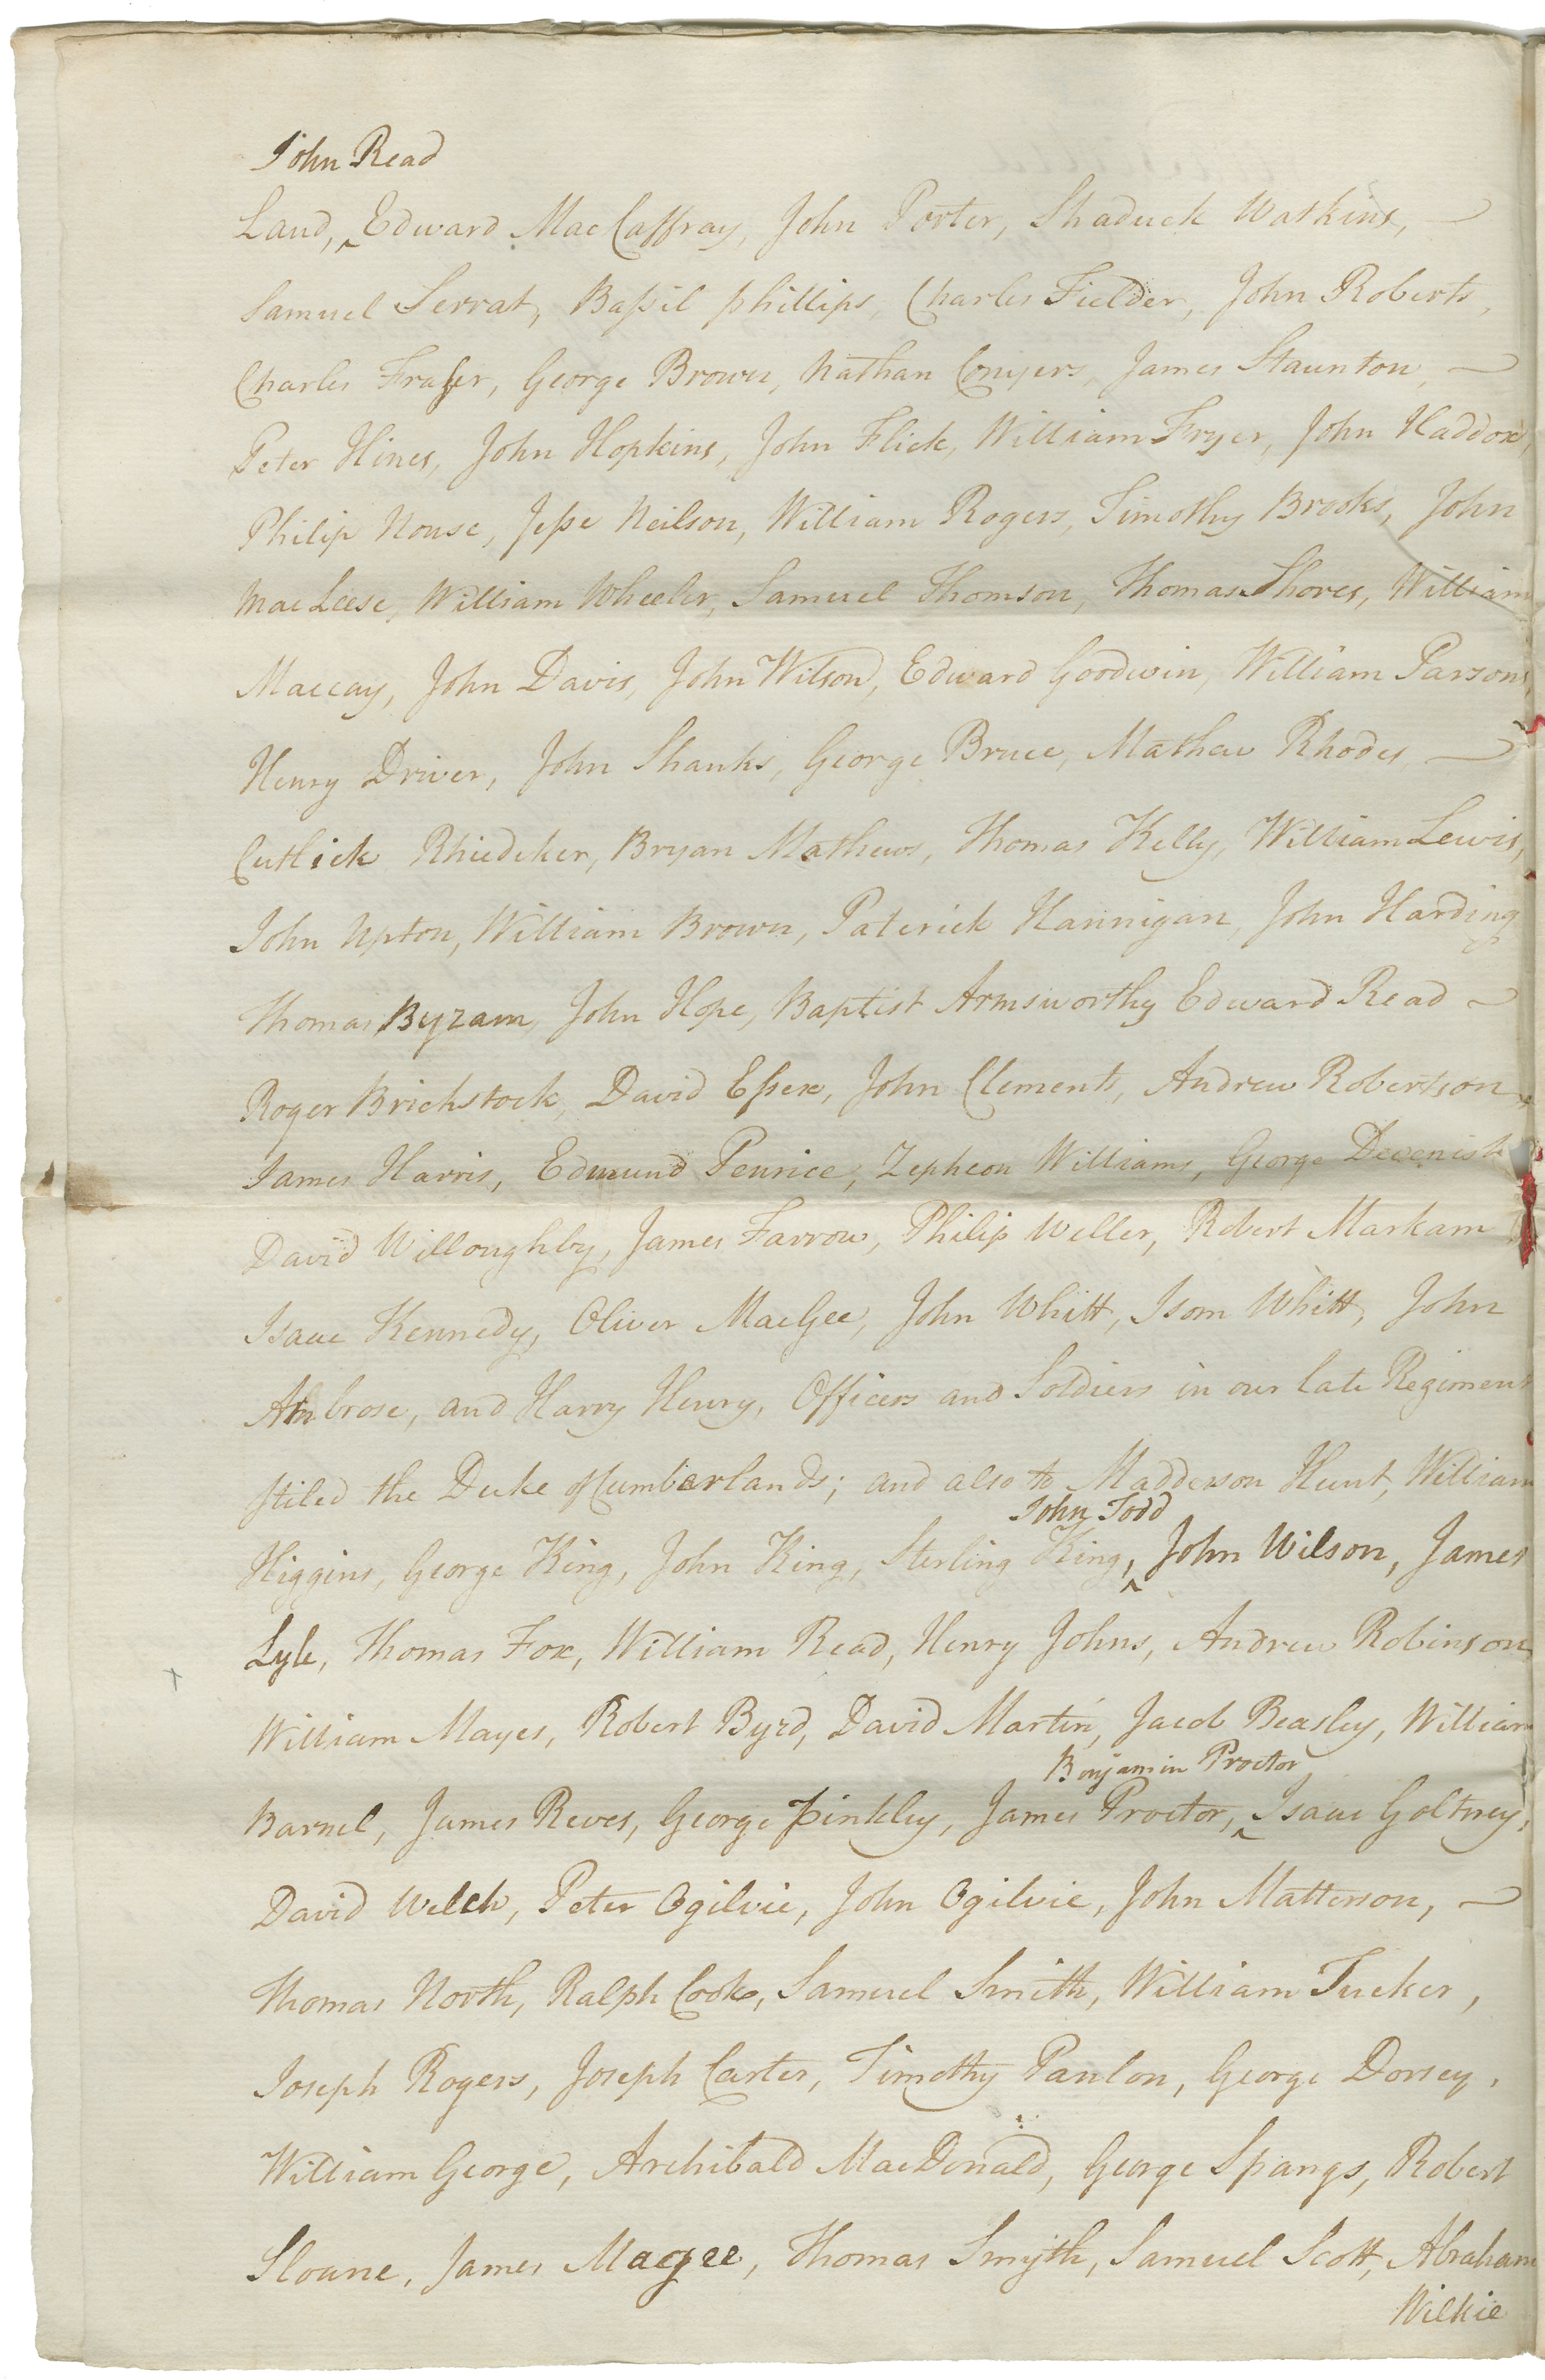 John Read
Laud, ^ Edward MacCaffray, John Porter, Shaduck Watkins, —
Samuel Serrat, Baſsil phillips, Charles Fielder, John Roberts,
Charles Fraser, George Brown, Nathan Conyers, James Staunton, —
Peter Hines, John Hopkins, John Flick, William Fryer, John Haddox,
Philip House, Jeſse Neilson, William Rogers, Timothy Brooks, John
MacLeese, William Wheeler, Samuel Thomson, Thomas Shores, William
Maccay, John Davis, John Wilson, Edward Goodwin, William Parsons,
Henry Driver, John Shanks, George Bruce, Mathew Rhodes —
Cutlick Rhiedeker, Bryan Mathews, Thomas Kelly, William Lewis,
John Upton, William Brown, Paterick Hannigan, John Harding
Thomas Byram, John Hope, Baptist Armsworthy Edward Read —
Roger Brichstock, David Eſsex, John Clements, Andrew Robertson,
James Harris, Edmund Penrice, Zepheon Williams, George Devenish
David Willoughby, James Farrow, Philip Weller, Robert Markam
Isaac Kennedy, Oliver MacGee, John Whitt, Isom Whitt, John
Ambrose, and Harry Henry, Officers and Soldiers in our late Regiment
stiled the Duke of Cumberlands; and also to Madderson Hunt, William
John Todd
Higgins, George King, John King, Sterling King, ^ John Wilson, James
Lyle, Thomas Fox, William Read, Henry Johns, Andrew Robinson,
William Mayes, Robert Byrd, David Martin, Jacob Beasley, William
Benjamin Proctor
Barnel, James Reves, George Pinkley, James Proctor, ^ Isaac Goltney,
David Welch, Peter Ogilvie, John Ogilvie, John Matterson, —
Thomas North, Ralph Cooke, Samuel Smith, William Tucker,
Joseph Rogers, Joseph Carter, Timothy Panlon, George Dorsey,
William George, Archibald MacDonald, George Spangs, Robert
Sloane, James Magee, Thomas Smyth, Samuel Scott, Abraham
Wilkie